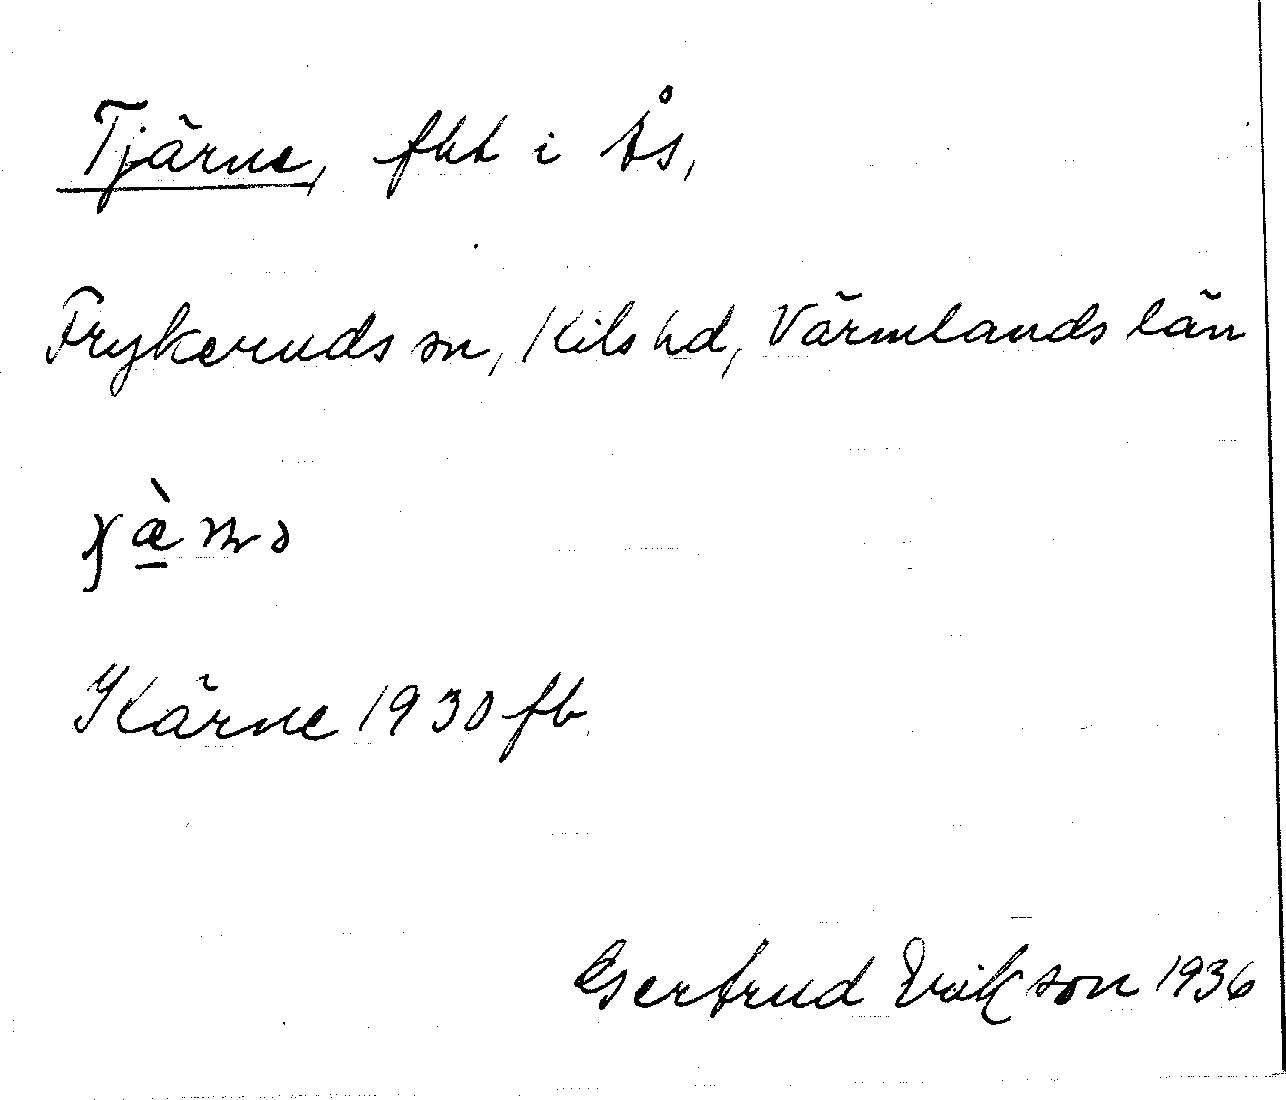 Tjärne, fht i Ås,
Frykeruds sn, Kils hd, Värmlands län
Kärne 1930 fb.
Gertrud Erikson 1936